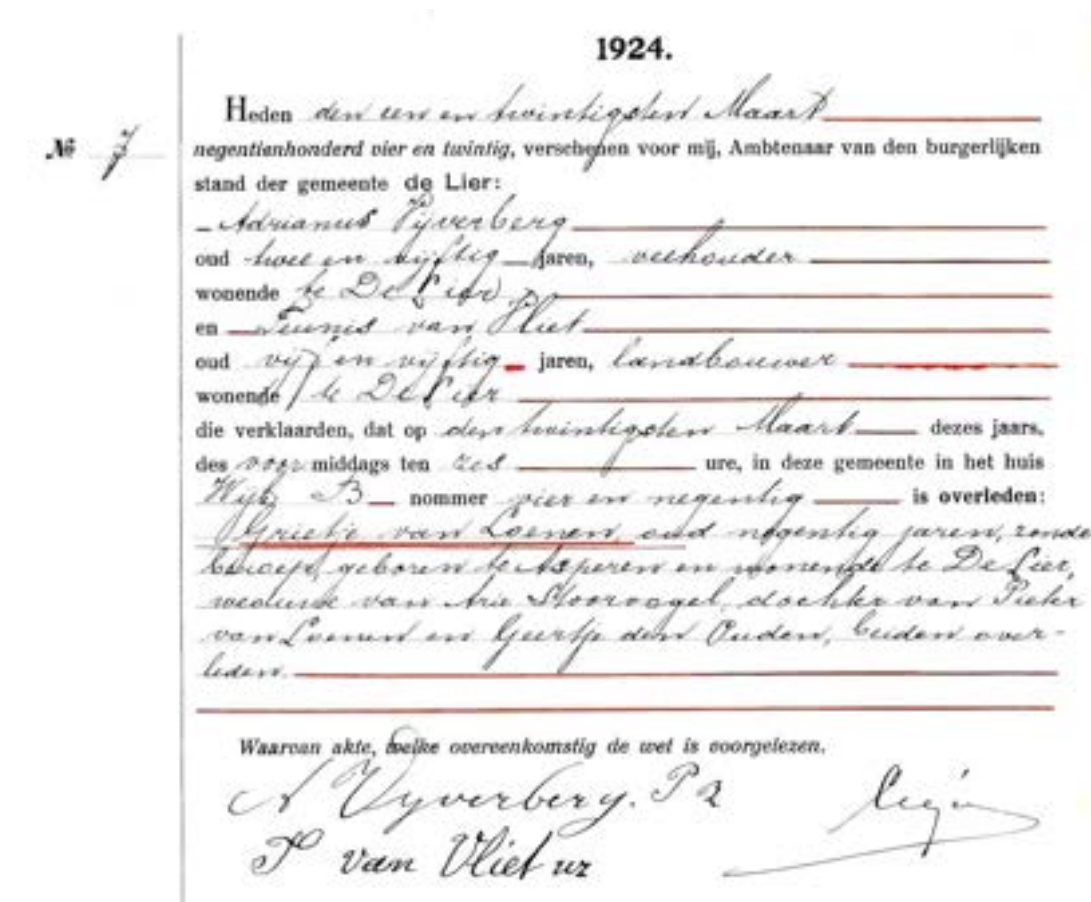 1924.
Heden den een en twintigsten Maart
№ 7 negentienhonderd vier en twintig, verschenen voor mij, Ambtenaar van den burgerlijken
stand der gemeente de Lier:
Adrianus Vijverberg
oud twee en vijftig jaren, veehouder
wonende te De Lier
en Teunis van Vliet
oud vijf en vijftig jaren, landbouwer
wonende te De Lier
die verklaarden, dat op den twintigsten Maart dezes jaars,
des voor middags ten zes ure, in deze gemeente in het huis
Wijk B nommer vier en negentig is overleden:
Grietje van Loenen, oud negentig jaren, zonde
beroep, geboren te Asperen en wonende te De Lier,
weduwe van Arie Stoorvogel, dochter van Pieter
van Loenen en Geertje den Ouden, beiden over-
leden.
Waarvan akte, welke overeenkomstig de wet is voorgelezen.
A Vyverberg. Pz
T van Vliet